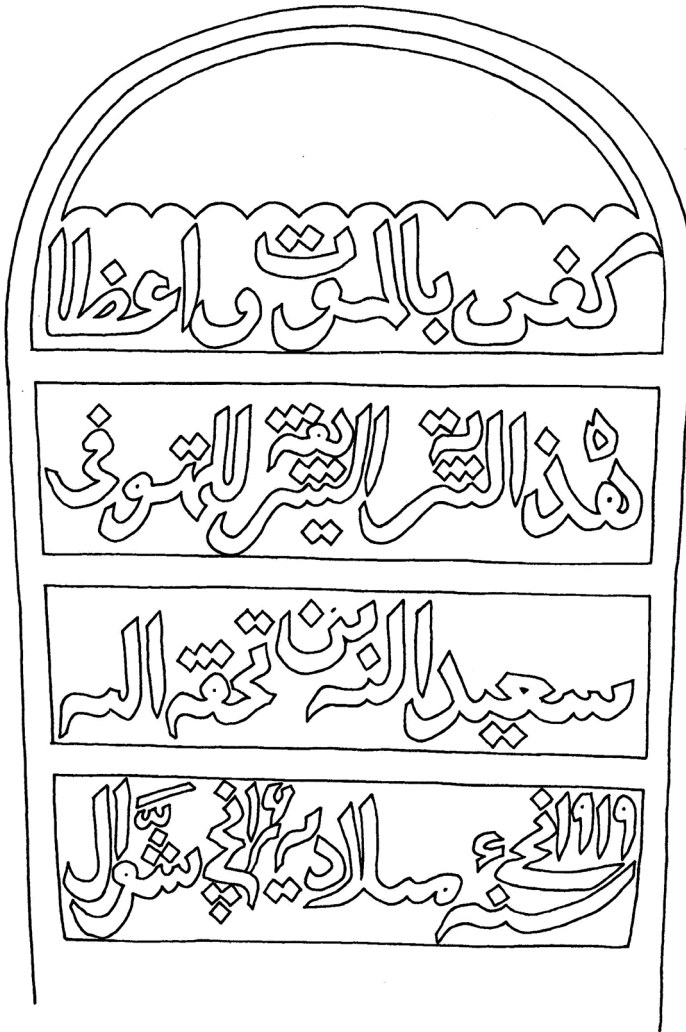 كفى بالموت واعظا
هذه التربة الشريفة للمتوفى
سعيد الله بن تحفه الله
١٩١٩ نچى سنه ميلاديه نچى شوّال